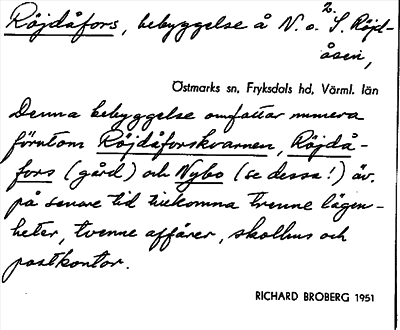 Röjdåfors, bebyggelse å N. o. 2. S. Röjd-
åsen,
Östmarks sn, Fryksdals hd, Värml. län
Denna bebyggelse omfattar numera
förutom Röjdåforskvarnen, Röjdå-
fors (gård) och Nybo (se dessa!) äv.
på senare tid tillkomna trenne lägen-
heter, tvenne affärer, skolhus och
postkontor.
RICHARD BROBERG 1951